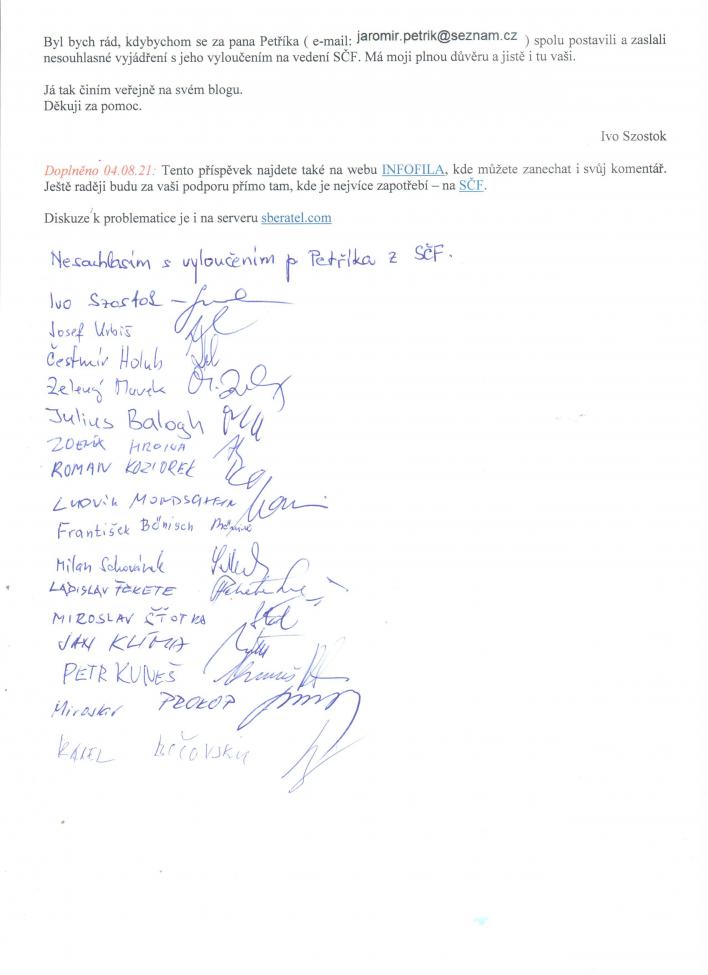 Byl bych rád, kdybychom se za pana Petříka ( e-mail: jaromir.petrik@seznam.cz ) spolu postavili a zaslali
nesouhlasné vyjádření s jeho vyloučením na vedení SČF. Má moji plnou důvěru a jistě i tu vaši.
Já tak činím veřejně na svém blogu.
Děkuji za pomoc.
Ivo Szostok
Doplněno 04.08.21: Tento příspěvek najdete také na webu INFOFILA, kde můžete zanechat i svůj komentář.
Ještě raději budu za vaši podporu přímo tam, kde je nejvíce zapotřebí – na SČF.
Diskuze k problematice je i na serveru sberatel.com
Nesouhlasím s vyloučením p Petříka z SČF.
Ivo Szostok
Josef Urbiš
Čestmír Holub
Zelený Marek
Julius Balogh
ZDENĚK
ROMAN KOZIOREK
LUDVÍK
František Bönisch
Milan
LADISLAV FEKETE
MIROSLAV
JAN KLÍMA
PETR KUNEŠ
Miroslav PROKOP
KAREL